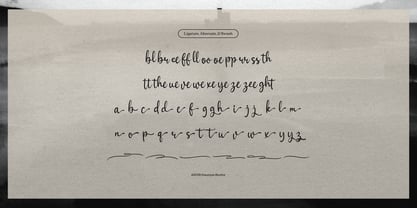 Ligature, Alternate, & Swash
bl br ee ff ll oo oe pp rr ss th
tt the ue ve we xe ye ze zee ght
a b c d d e f g g h i j j k l m
n o p q r s t t u v w x y y z